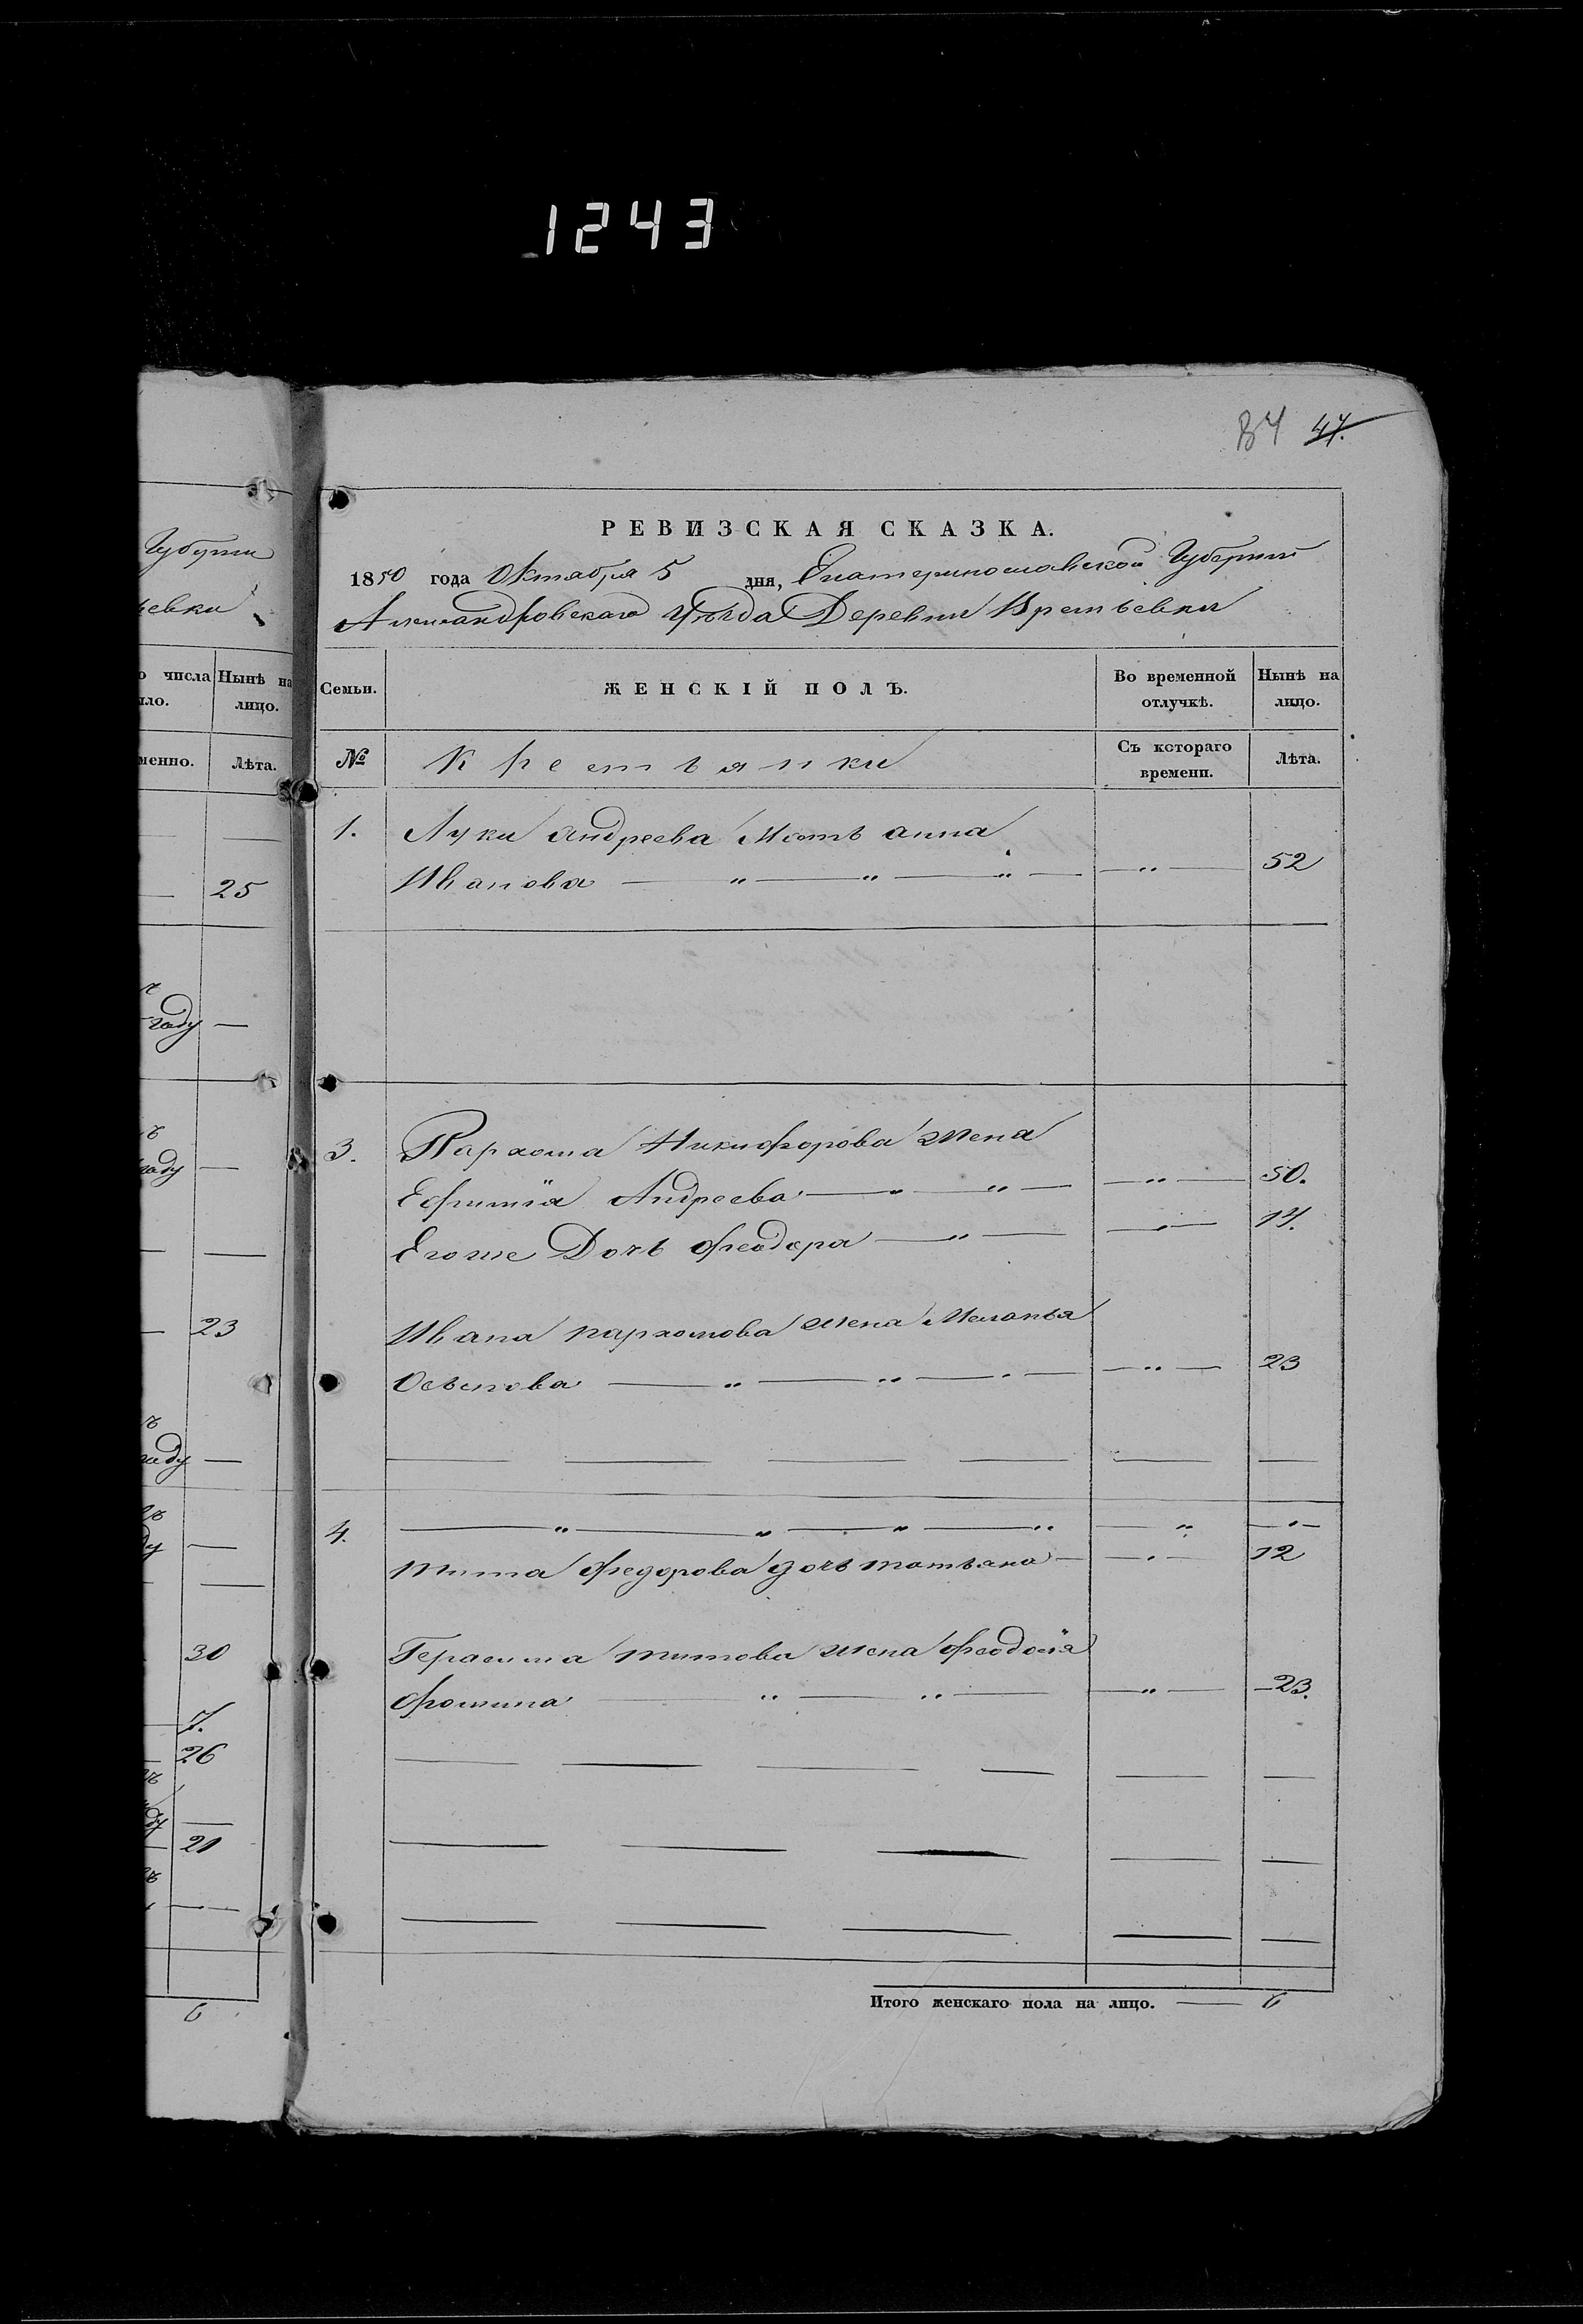 1243
84 47.
Губернии
ревки
о числа Нынѣ на
ыло. лицо.
менно. Лѣта.
25
году
году
23
году
30
7.
26
21
6
РЕВИЗСКАЯ СКАЗКА.
1850 года Октября 5 дня, Екатеринославской Губернии
Александровскаго Уѣзда Деревни Времьевки
Семьи. ЖЕНСКІЙ ПОЛЪ. Во временной отлучкѣ. Нынѣ на лицо.
№ Крестьянки Съ котораго времени. Лѣта.
1. Луки Андреева Мать анна
Иванова 52
3. Пархома Никифорова жена
Ефимія Андреева 50.
Егоже Дочь Феодора 14.
Ивана пархомова жена Меланья
Осьпова 23
4.
тита Федорова дочь татьяна 12
Герасима титова жена Феодосія
Фомина 23.
Итого женскаго пола на лицо. 6